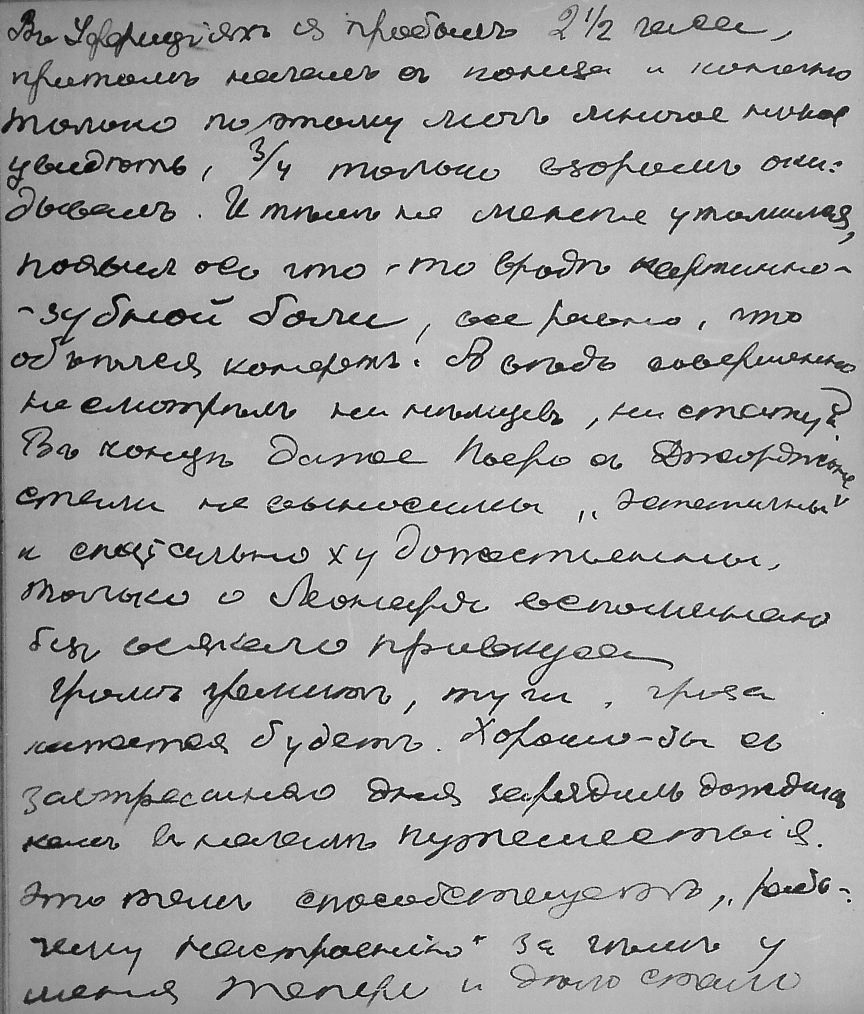 Въ Уффиціяхъ я пробылъ 2 1/2 часа,
притомъ началъ съ конца и конечно
только поэтому могъ многое
увидѣть, 3/4 только взоромъ оки-
дывалъ. И тѣмъ не менѣе утомился,
появилось что-то вродѣ картинно-
-зубной боли, все равно, что
объѣлся конфетъ. А вѣдь совершенно
не смотрѣлъ ни нѣмцевъ, ни статуй.
Въ концѣ даже Пьеро съ Джорджоне
стали невыносимы „эстетичны"
и спеціально художественны,
только о Леонардо вспоминаю
безъ всякаго привкуса
Громъ гремитъ, тучи, гроза
кажется будетъ. Хорошо-бы съ
завтрашняго дня зарядилъ дождика
какъ въ началѣ путешествія.
Это такъ способствуетъ „рабо-
чему настроенію" за чѣмъ у
меня теперь и дѣло стало